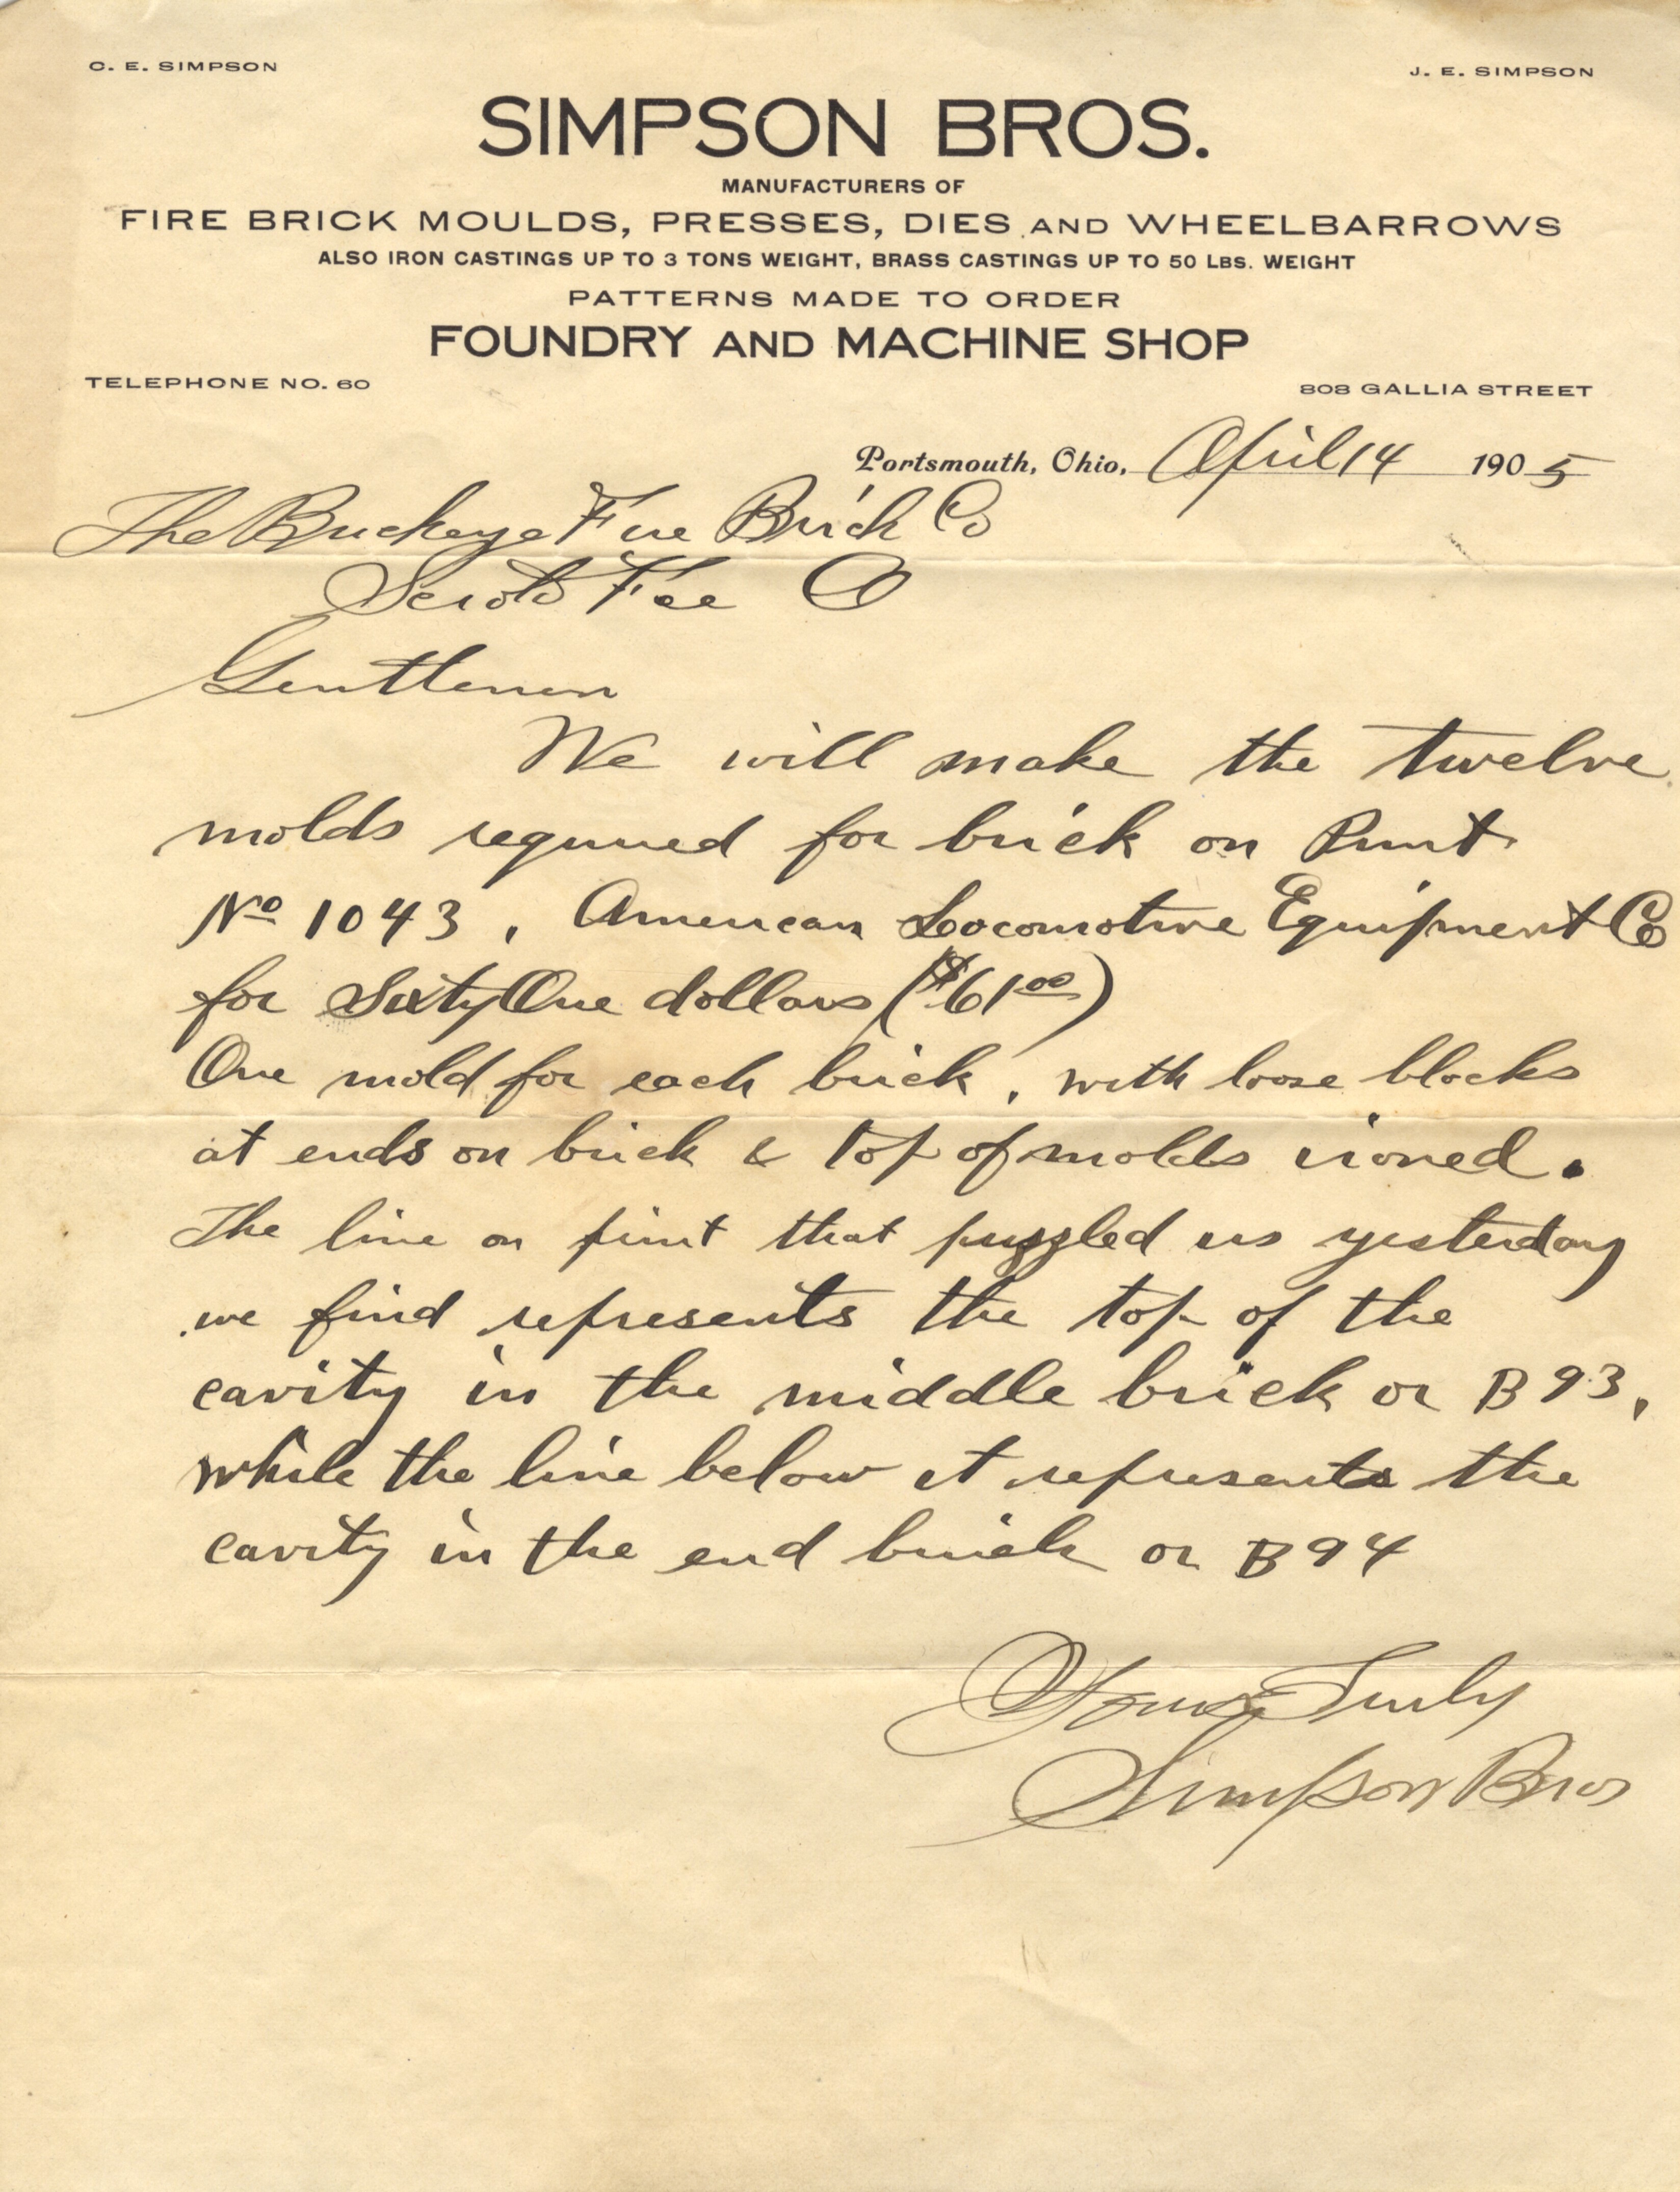 C. E. SIMPSON
J. E. SIMPSON
SIMPSON BROS.
MANUFACTURERS OF
FIRE BRICK MOULDS, PRESSES, DIES AND WHEELBARROWS
ALSO IRON CASTINGS UP TO 3 TONS WEIGHT, BRASS CASTINGS UP TO 50 LBS. WEIGHT
PATTERNS MADE TO ORDER
FOUNDRY AND MACHINE SHOP
TELEPHONE NO. 60
808 GALLIA STREET
Portsmouth, Ohio, April 14 1905
The Buckeye Fire Brick Co
Scioto Fce O
Gentlemen
We will make the twelve
molds required for brick on Print
No 1043, American Locomotive Equipment Co
for Sixty One dollars ($61 00)
One mold for each brick, with loose blocks
at ends on brick & top of molds ironed.
The line on print that puzzled us yesterday
we find represents the top of the
cavity in the middle brick or B 93,
while the line below it represents the
cavity in the end brick or B 94
Yours Truly
Simpson Bros